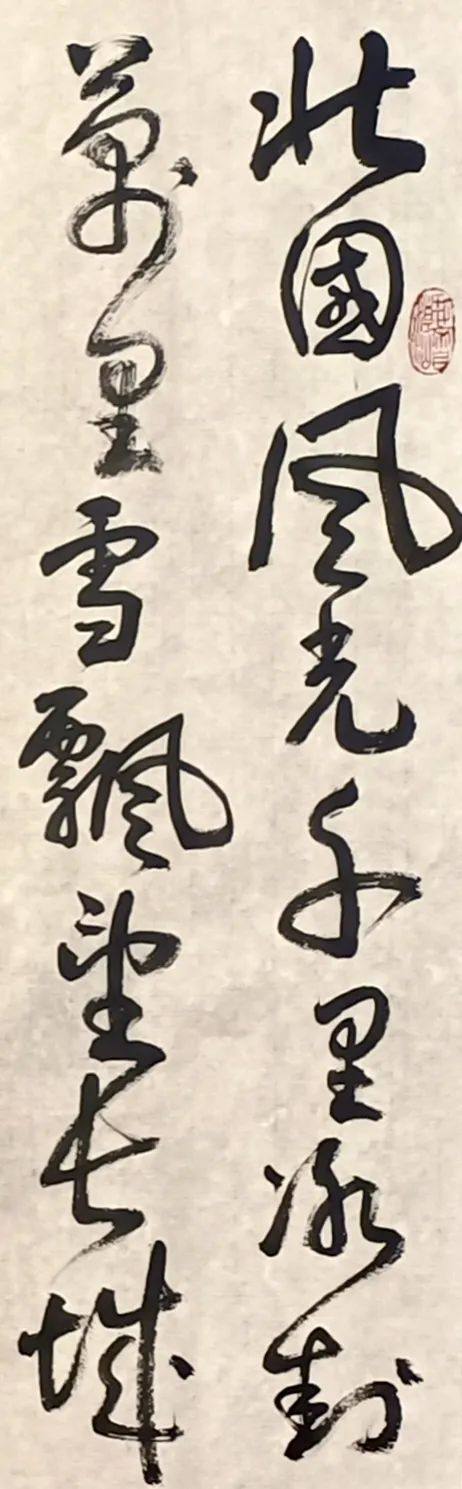 北國風光千里冰封
萬里雪飄望長城